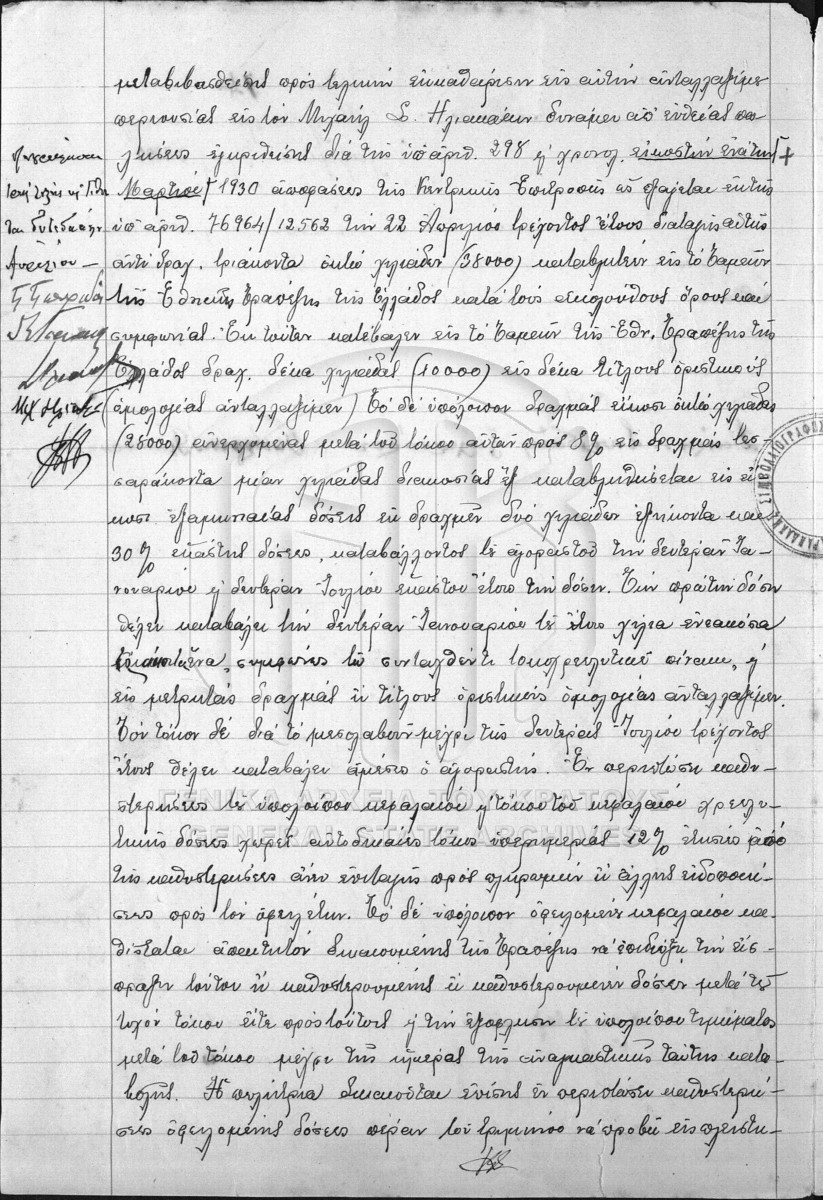 μεταβιβασθείσης πρὸς τελικὴν ἐκκαθάρισιν εἰς αὐτὴν ἀνταλλαξίμου
περιουσίας εἰς τὸν Μιχαὴλ Σ. Ἠλιακάκην δυνάμει ἀπ' εὐθείας πω
λήσεως ἐγκριθείσης διὰ τῆς ὑπ' ἀριθ. 298 ἡ χρονολ. εἰκοστὴν ἐνάτην +
Μαρτίου 1930 ἀποφάσεως τῆς Κεντρικῆς Ἐπιτροπῆς ὡς ἐξάγεται ἐκ τῆς
ὑπ' ἀριθ. 76964/12562 τὴν 22 Ἀπριλίου τρέχοντος ἔτους διαταγῆς αὐτῆς
ἀντὶ δραχ. τριάκοντα ὀκτὼ χιλιάδων (38000) καταβλητέων εἰς τὸ Ταμεῖον
τῆς Ἐθνικῆς Τραπέζης τῆς Ἑλλάδος κατὰ τοὺς ἀκολούθους ὅρους καὶ
συμφωνίας. Ἐκ τούτων κατέβαλεν εἰς τὸ Ταμεῖον τῆς Ἐθν. Τραπέζης τῆς
Ἑλλάδος δραχ. δέκα χιλιάδας (10000) εἰς δέκα τίτλους ὁριστικοὺς
(ὁμολογίας ἀνταλλαξίμων) Τὸ δὲ ὑπόλοιπον δραχμὰς εἴκοσι ὀκτὼ χιλιάδας
(28000) ἀνερχομένας μετὰ τοῦ τόκου αὐτῶν πρὸς 8% εἰς δραχμὰς τεσ-
σαράκοντα μίαν χιλιάδας διακοσίας ἓξ καταβληθήσεται εἰς εἴ
κοσι ἑξαμηνιαίας δόσεις ἐκ δραχμῶν δύο χιλιάδων ἑξήκοντα καὶ
30% ἑκάστης δόσεως, καταβάλλοντος τοῦ ἀγοραστοῦ τὴν δευτέραν Ἰα-
νουαρίου ἢ δευτέραν Ἰουλίου ἑκάστου ἔτους τὴν δόσιν. Τὴν πρώτην δόσιν
θέλει καταβάλει τὴν δευτέραν Ἰανουαρίου τοῦ ἔτους χίλια ἐνεακόσια
τριάκοντα ἕνα, συμφώνως τῷ συνταχθέντι τοκοχρεωλυτικῷ πίνακι, ἢ
εἰς μετρητὰς δραχμὰς ἢ τίτλους ὁριστικοὺς ὁμολογίας ἀνταλλαξίμων.
Τὸν τόκον δὲ διὰ τὸ μεσολαβοῦν μέχρι τῆς δευτέρας Ἰουλίου τρέχοντος
ἔτους θέλει καταβάλει ἀμέσως ὁ ἀγοραστής. Ἐν περιπτώσει καθυ-
στερήσεως τοῦ ὑπολοίπου κεφαλαίου ἢ τόκου τοῦ κεφαλαίου χρεωλυ-
τικῆς δόσεως χωρεῖ αὐτοδικαίως τόκος ὑπερημερίας 12% ἐτησίως ἀπὸ
τῆς καθυστερήσεως ἄνευ ἐπιταγῆς πρὸς πληρωμὴν ἢ ἄλλης εἰδοποιή-
σεως πρὸς τὸν ὀφειλέτην. Τὸ δὲ ὑπόλοιπον ὀφειλόμενον κεφάλαιον κα-
θίσταται ἀπαιτητὸν δικαιουμένης τῆς Τραπέζης νὰ ἐπιδιώξῃ τὴν εἴσ-
πραξιν τούτου ἢ καθυστερουμένης ἢ καθυστερουμένων δόσεων μετὰ τῶν
τυχὸν τόκου εἴτε πρὸς τούτοις ἢ τὴν ἐξόφλησιν τοῦ ὑπολοίπου τιμήματος
μετὰ τοῦ τόκου μέχρι τῆς ἡμέρας τῆς ἀναγκαστικῆς ταύτης κατα-
βολῆς. Ἡ πωλήτρια δικαιοῦται ἐπίσης ἐν περιπτώσει καθυστερή-
σεως ὀφειλομένης δόσεως πέραν τοῦ τριμήνου νὰ προβῇ εἰς πλειστη-
ΓΕΝΙΚΑ ΑΡΧΕΙΑ ΤΟΥ ΚΡΑΤΟΥΣ
GENERAL STATE ARCHIVES